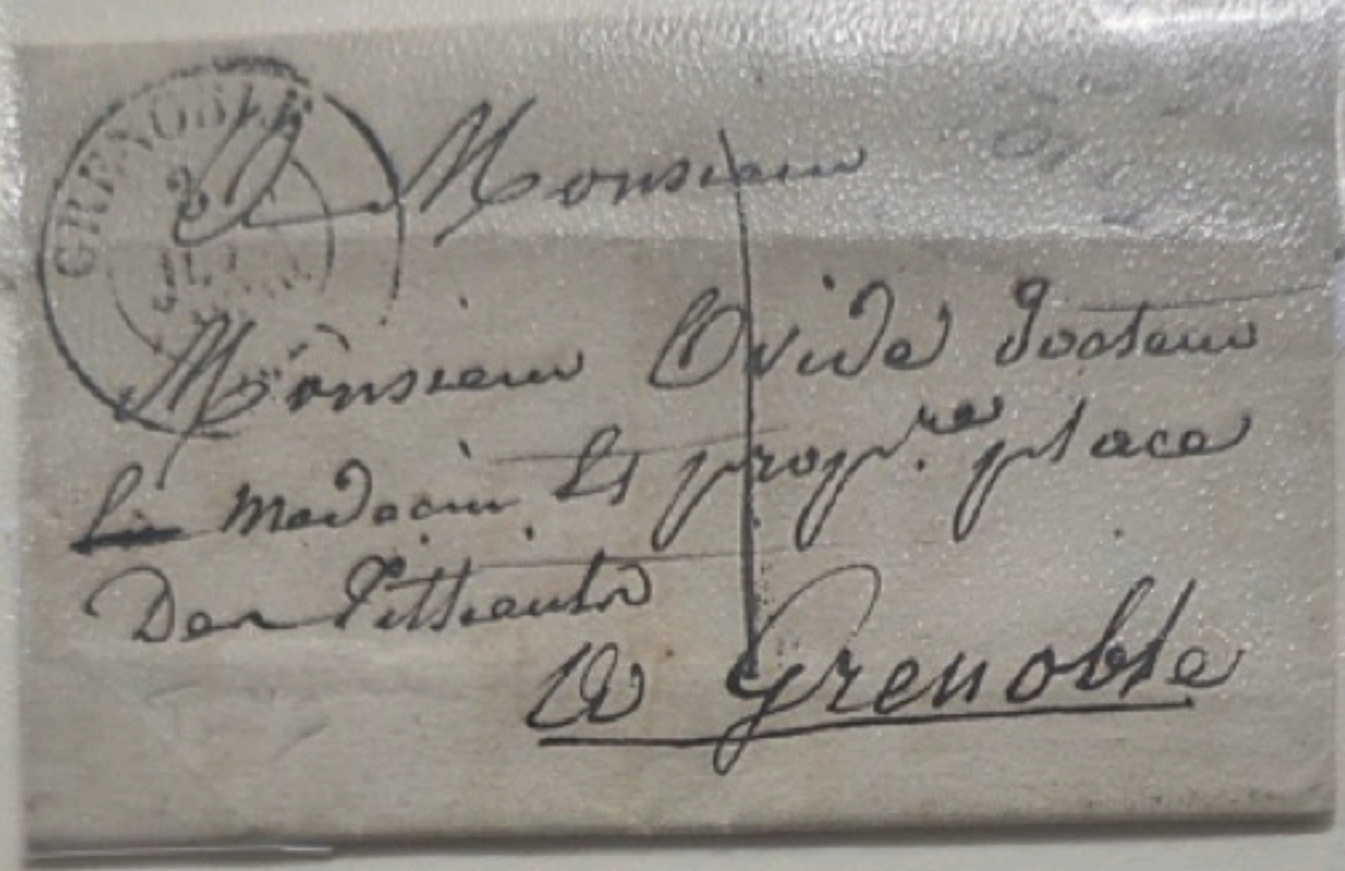 GRENOBLE
2
JUIL
A Monsieur
Monsieur Ovide docteur
En Medecin Et propr.re place
Des Tilleuls
A Grenoble